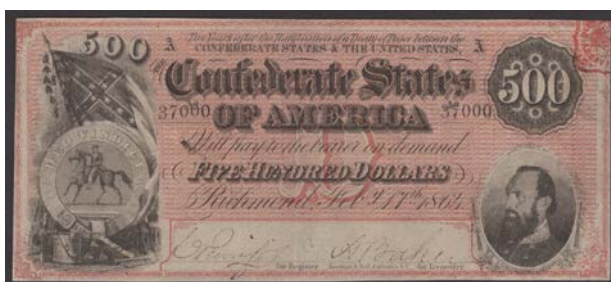 500 A Two Years after the Ratification of a Treaty of Peace between the
CONFEDERATE STATES & THE UNITED STATES, A
Confederate States 500
37000 OF AMERICA 37000
Will pay to the bearer on demand
FIVE HUNDRED DOLLARS
Richmond, Feb.y 17th 1864
for Register for Treasurer